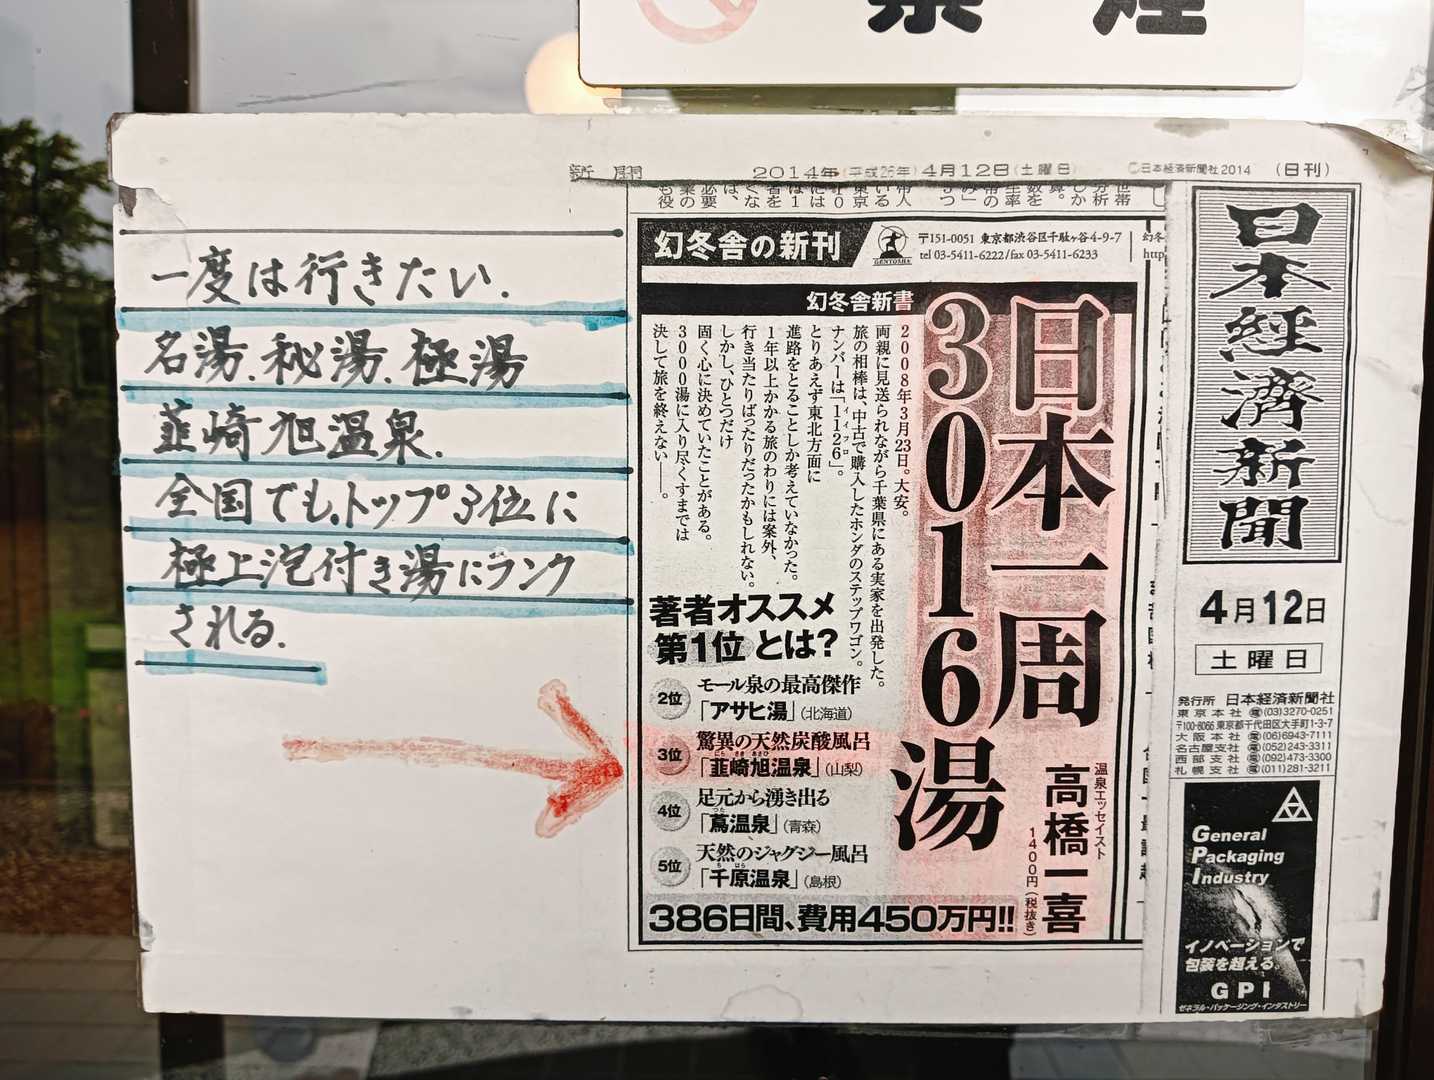 禁煙
新聞 2014年(平成26年)4月12日(土曜日) ©日本経済新聞社2014 (日刊)
一度は行きたい.
名湯.秘湯.極湯
韮崎旭温泉.
全国でも、トップ3位に
極上泡付き湯にランク
される.
幻冬舎の新刊
GENTOSHA
〒151-0051 東京都渋谷区千駄ヶ谷4-9-7
tel 03-5411-6222/fax 03-5411-6233
幻冬
http
幻冬舎新書
日本一周
3016湯
温泉エッセイスト
高橋一喜
1400円(税抜き)
2008年3月23日。大安。
両親に見送られながら千葉県にある実家を出発した。
旅の相棒は、中古で購入したホンダのステップワゴン。
ナンバーは「1126」。
イイフロ
とりあえず東北方面に
進路をとることしか考えていなかった。
1年以上かかる旅のわりには案外、
行き当たりばったりだったかもしれない。
しかし、ひとつだけ
固く心に決めていたことがある。
3000湯に入り尽くすまでは
決して旅を終えない――。
著者オススメ
第1位とは?
2位 モール泉の最高傑作
「アサヒ湯」(北海道)
3位 驚異の天然炭酸風呂
にらさきあさひ
「韮崎旭温泉」(山梨)
4位 足元から湧き出る
つた
「蔦温泉」(青森)
5位 天然のジャグジー風呂
ちはら
「千原温泉」(島根)
386日間、費用450万円!!
日本経済新聞
4月12日
土曜日
発行所 日本経済新聞社
東京本社 電(03)3270-0251
〒100-8066 東京都千代田区大手町1-3-7
大阪本社 電(06)6943-7111
名古屋支社 電(052)243-3311
西部支社 電(092)473-3300
札幌支社 電(011)281-3211
General
Packaging
Industry
イノベーションで
包装を超える。
GPI
ゼネラル・パッケージング・インダストリー